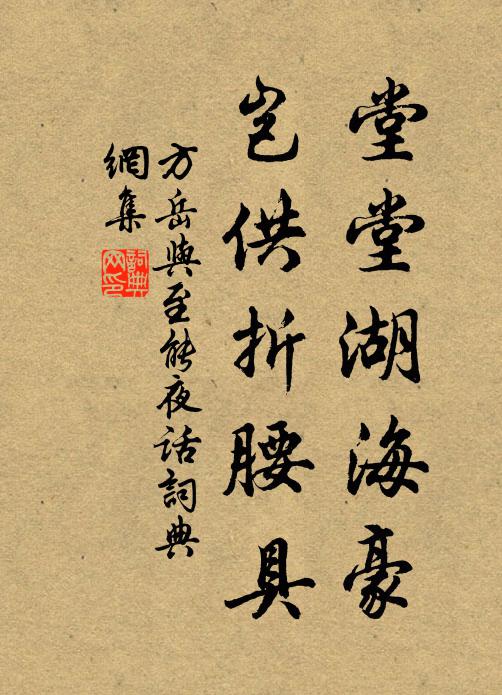 堂堂湖海豪
岂供折腰具
方岳與至能夜话詞典
網集
詞典
网印